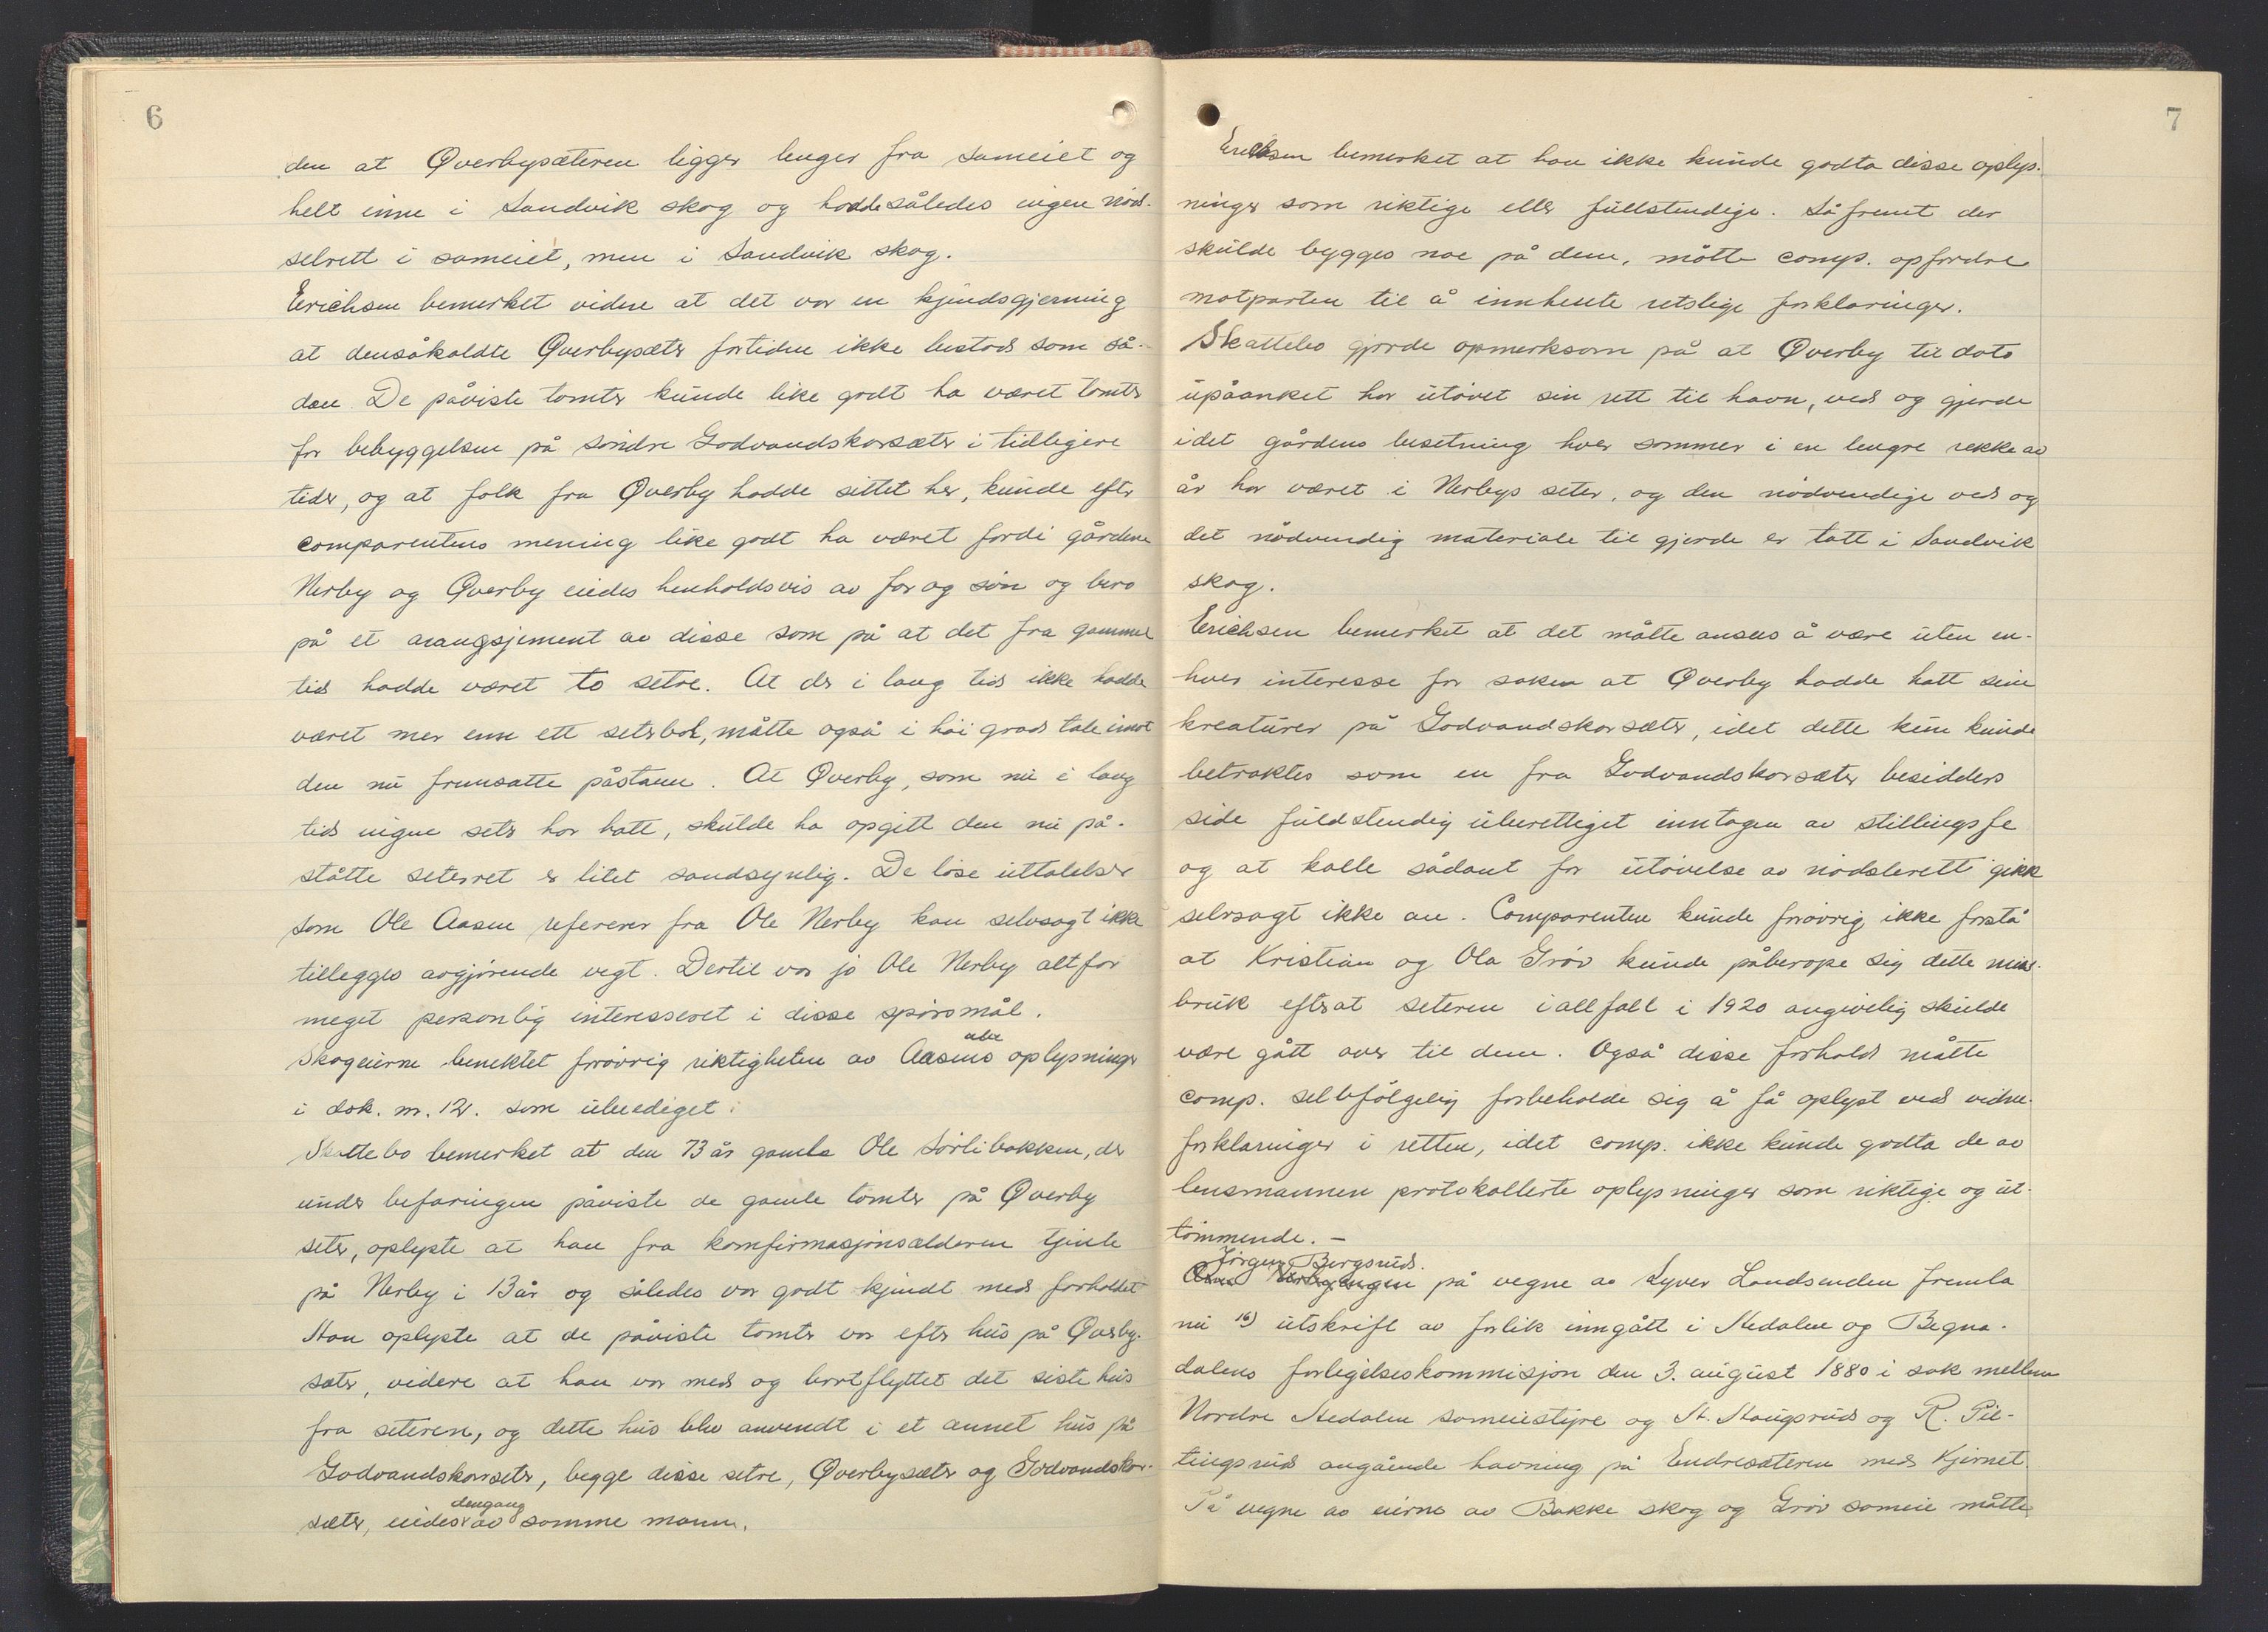 6
den at Øverbysæteren ligger lenger fra sameiet og
helt inne i Sandvik skog og hadde således ingen nöd-
selrett i sameiet, men i Sandvik skog.
Erichsen bemerket videre at det var en kjendsgjerning
at densåkaldte Øverbysæter fortiden ikke bestod som så-
dan. De påviste tomter kunde like godt ha været tomter
for bebyggelsen på söndre Godvandskorsæter i tidligere
tider, og at folk fra Øverby hadde sittet her, kunde efter
comparentens mening like godt ha været fordi gårdene
Nerby og Øverby eiedes henholdsvis av far og sön og bero
på et arangsjement av disse som på at det fra gammel
tid hadde været to setre. At der i lang tid ikke hadde
været mer enn ett seterbol, måtte også i höi grad tale imot
den nu fremsatte påstann. At Øverby, som nu i lang
tid ingen seter har hatt, skulde ha opgitt den nu på-
ståtte seterret er litet sandsynlig. De löse uttalelser
som Ole Aasen refererer fra Ole Nerby kan selvsagt ikke
tillegges avgjörende vegt. Dertil var jo Ole Nerby altfor
meget personlig interesseret i disse spörsmål.
Skogeierne benektet forövrig riktigheten av Aasens oplysninger
i dok. nr. 12. som ubeediget.
Skattebo bemerket at den 73 år gamle Ole Sörlibakken, der
under befaringen påviste de gamle tomter på Øverby
seter, oplyste at han fra komfirmasjonsalderen tjente
på Nerby i 13 år og således var godt kjendt med forholdet
Han oplyste at de påviste tomter var efter hus på Øverby-
sæter, videre at han var med og bortflyttet det siste hus
fra seteren, og dette hus blev anvendt i et annet hus på
Godvandskorseter, begge disse setre, Øverbysæter og Godvandskor-
dengang
sæter, eiedes av samme mann.
7
Erichsen bemerket at han ikke kunde godta disse oplys-
ninger som riktige eller fullstendige. Såfremt der
skulde bygges noe på dem, måtte comp. opfordre
motparten til å innhente retslige forklaringer.
Skattebo gjorde opmerksom på at Øverby til dato
upåanket har utövet sin rett til havn, ved og gjerde
idet gårdens besetning hver sommer i en lengre rekke av
år har været i Nerbys seter, og den nödvendige ved og
det nödvendig materiale til gjerde er tatt i Sandvik
skog.
Erichsen bemerket at det måtte ansees å være uten en-
hver interesse for saken at Øverby hadde hatt sine
kreaturer på Godvandskorsæter, idet dette kun kunde
betraktes som en fra Godvandskorsæter besidders
side fuldstendig uberettiget inntagen av stillingsfe
og at kalle sådant for utövelse av nödslerett gikk
selvsagt ikke an. Comparenten kunde forövrig ikke forstå
at Kristian og Ola Gröv kunde påberope sig dette mis-
bruk efterat seteren i allfall i 1920 angivelig skulde
være gått over til dem. Også disse forhold måtte
comp. selvfölgelig forbeholde sig å få oplyst ved vidne-
forklaringer i retten, idet comp. ikke kunde godta de av
lensmannen protokollerte oplysninger som riktige og ut-
tömmende. –
Jörgen Bergsrud.
på vegne av Syver Landsenden fremla
nu 16) utskrift av forlik inngått i Hedalen og Begna-
dalens forligelseskommisjon den 3. august 1880 i sak mellem
Nordre Hedalen sameiestyre og St. Haugsrud og R. Pil-
tingsrud angående havning på Endresæteren med Kjernet.
På vegne av eierne av Bakke skog og Gröv sameie måtte